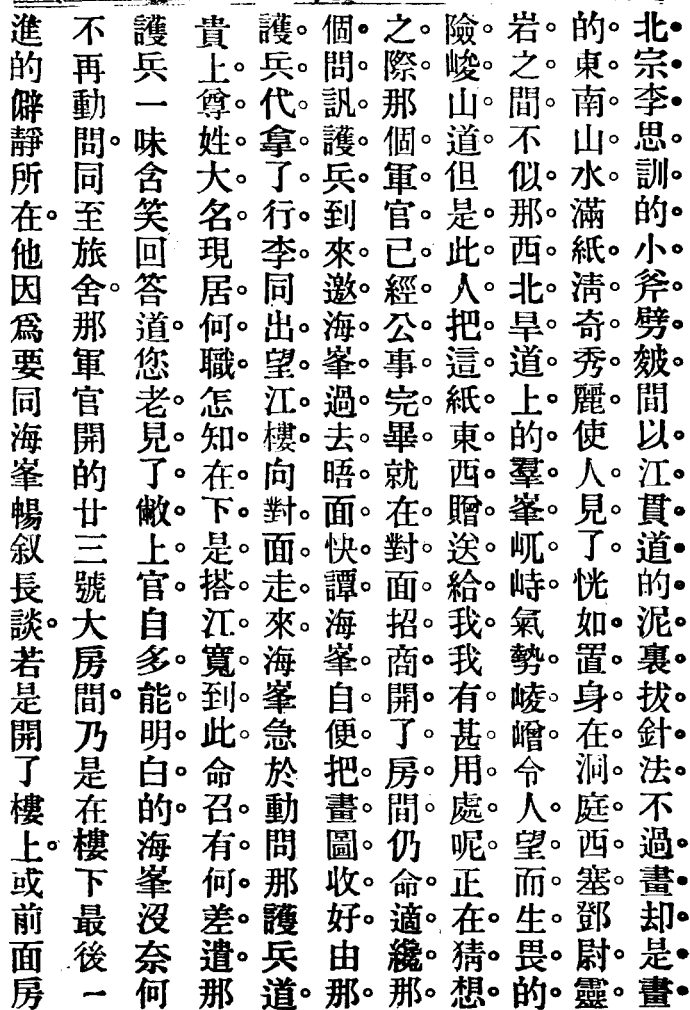 北宗李思訓的小斧劈皴間以江貫道的泥裏拔針法不過畫却是畫
的東南山水滿紙清奇秀麗使人見了恍如置身在洞庭西塞鄧尉靈
岩之間不似那西北旱道上的羣峯屼峙氣勢崚嶒令人望而生畏的
險峻山道但是此人把這紙東西贈送給我我有甚用處呢正在猜想
之際那個軍官已經公事完畢就在對面招商開了房間仍命適纔那
個問訊護兵到來邀海峯過去晤面快譚海峯自便把畫圖收好由那
護兵代拿了行李同出望江樓向對面走來海峯急於動問那護兵道
貴上尊姓大名現居何職怎知在下是搭江寬到此命召有何差遣那
護兵一味含笑回答道您老見了敝上官自多能明白的海峯沒奈何
不再動問。同至旅舍。那軍官開的廿三號大房間。乃是在樓下最後一
進的僻靜所在。他因爲要同海峯暢叙長談。若是開了樓上。或前面房